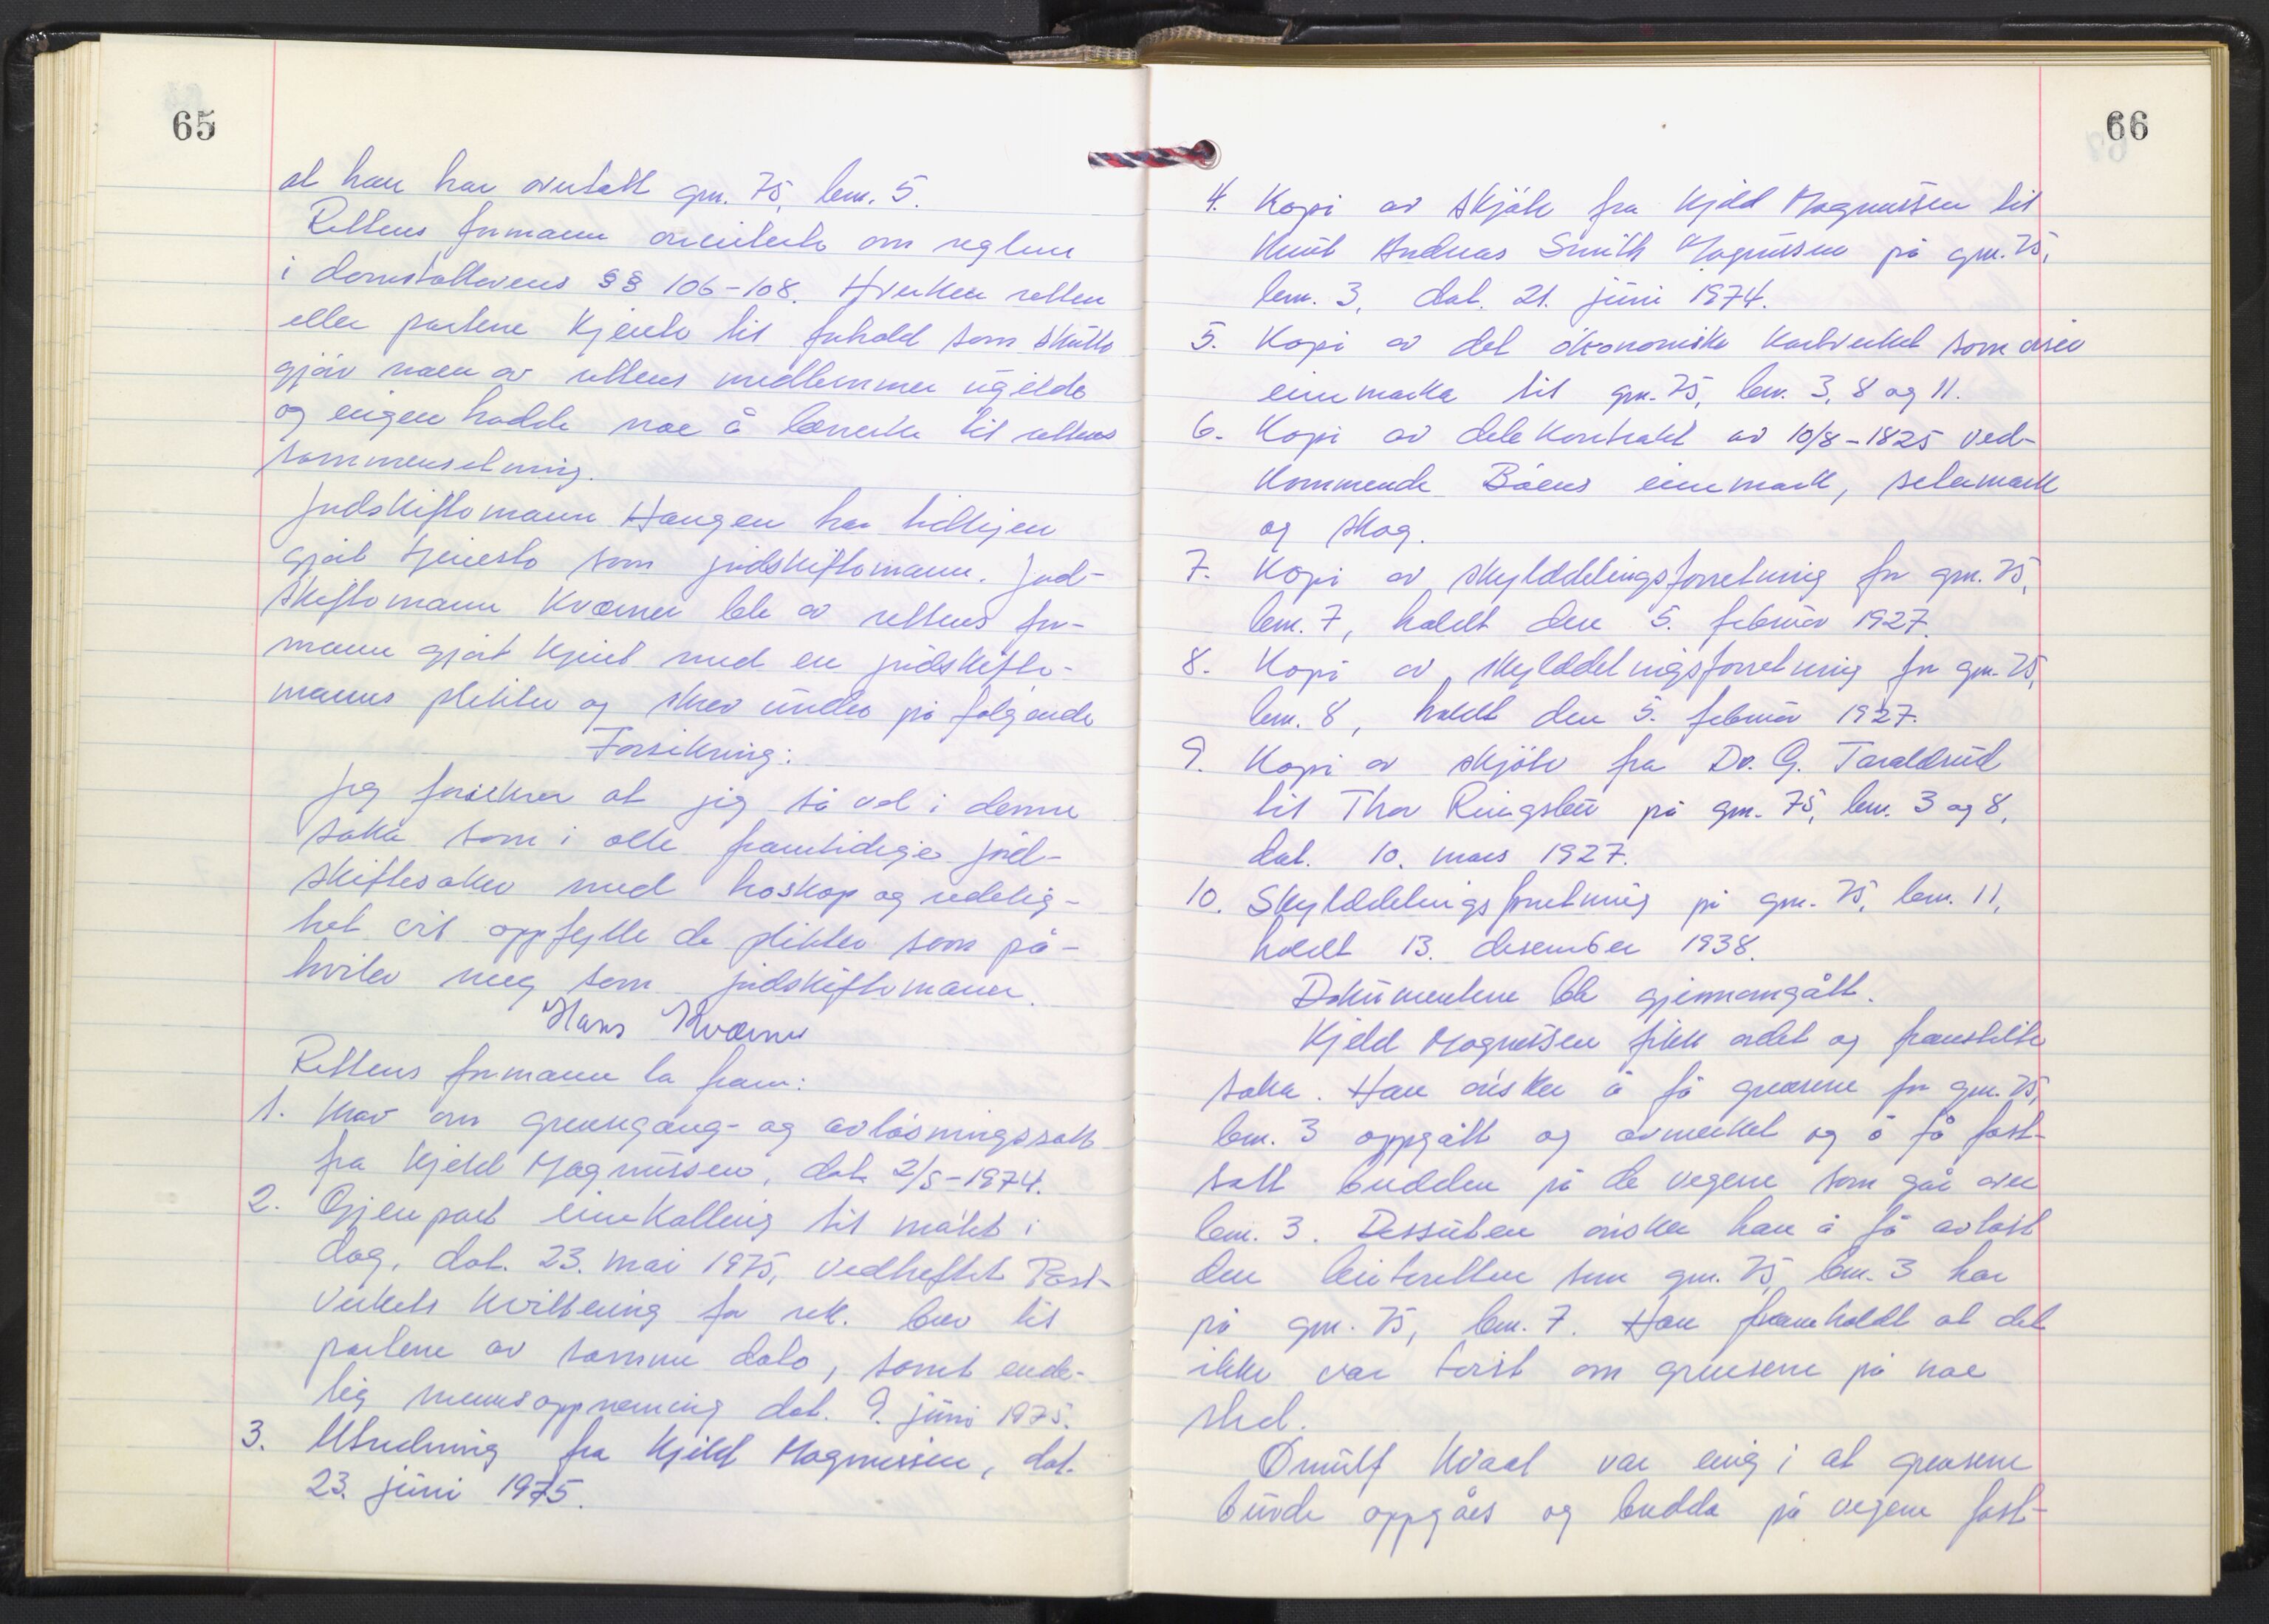 65
at han har overtatt gnr. 75, bnr. 5.
Rettens formann orienterte om reglene
i domstollovens §§ 106-108. Hverken retten
eller partene kjente til forhold som skulle
gjør noen av rettens medlemmer ugilde
og ingen hadde noe å bemerke til rettens
sammensetning.
Jordskiftemann Haugen har tidligere
gjort tjeneste som jordskiftemann. Jord-
skiftemann Kværner ble av rettens for-
mann gjort kjent med en jordskifte-
manns plikter og skrev under på følgende
Forsikring:
Jeg forsikrer at jeg så vel i denne
saka som i alle framtidige jord-
skiftesaker med troskap og redelig-
het vil oppfylle de plikter som på-
hviler meg som jordskiftemann.
Hans Kværner
Rettens formann la fram:
1. Krav om grensegang- og avløsningssak
fra Kjeld Magnussen, dat. 2/5-1974.
2. Gjenpart innkalling til møtet i
dag, dat. 23. mai 1975, vedheftet Post-
verkets kvittering for rek. brev til
partene av samme dato, samt ende-
lig mannsoppnevning dat. 9. juni 1975.
3. Utredning fra Kjeld Magnussen, dat.
23. juni 1975.
66
4. Kopi av skjøte fra Kjeld Magnussen til
Knut Andreas Smith Magnussen på gnr. 75,
bnr. 3, dat. 21. juni 1974.
5. Kopi av det økonomiske kartverket som viser
innmarka til gnr. 75, bnr. 3, 8 og 11.
6. Kopi av delekontrakt av 10/8-1825 ved-
kommende Bøens innmark, setermark
og skog.
7. Kopi av skylddelingsforretning for gnr. 75,
bnr. 7, holdt den 5. februar 1927.
8. Kopi av skylddelingsforretning for gnr. 75,
bnr. 8, holdt den 5. februar 1927.
9. Kopi av skjøte fra Dr. G. Taraldrud
til Thor Ringsbu på gnr. 75, bnr. 3 og 8,
dat. 10. mars 1927.
10. Skylddelingsforretning på gnr. 75, bnr. 11,
holdt 13. desember 1938.
Dokumentene ble gjennomgått.
Kjeld Magnussen fikk ordet og framstilte
saka. Han ønsker å få grensene for gnr. 75,
bnr. 3 oppgått og avmerket og å få fast-
satt bredden på de vegene som går over
bnr. 3. Dessuten ønsker han å få avløst
den beiteretten som gnr. 75, bnr. 3 har
på gnr. 75, bnr. 7. Han framholdt at det
ikke var tvist om grensene på noe
sted.
Ørnulf Kvaal var enig i at grensene
burde oppgåes og bredda på vegene fast-